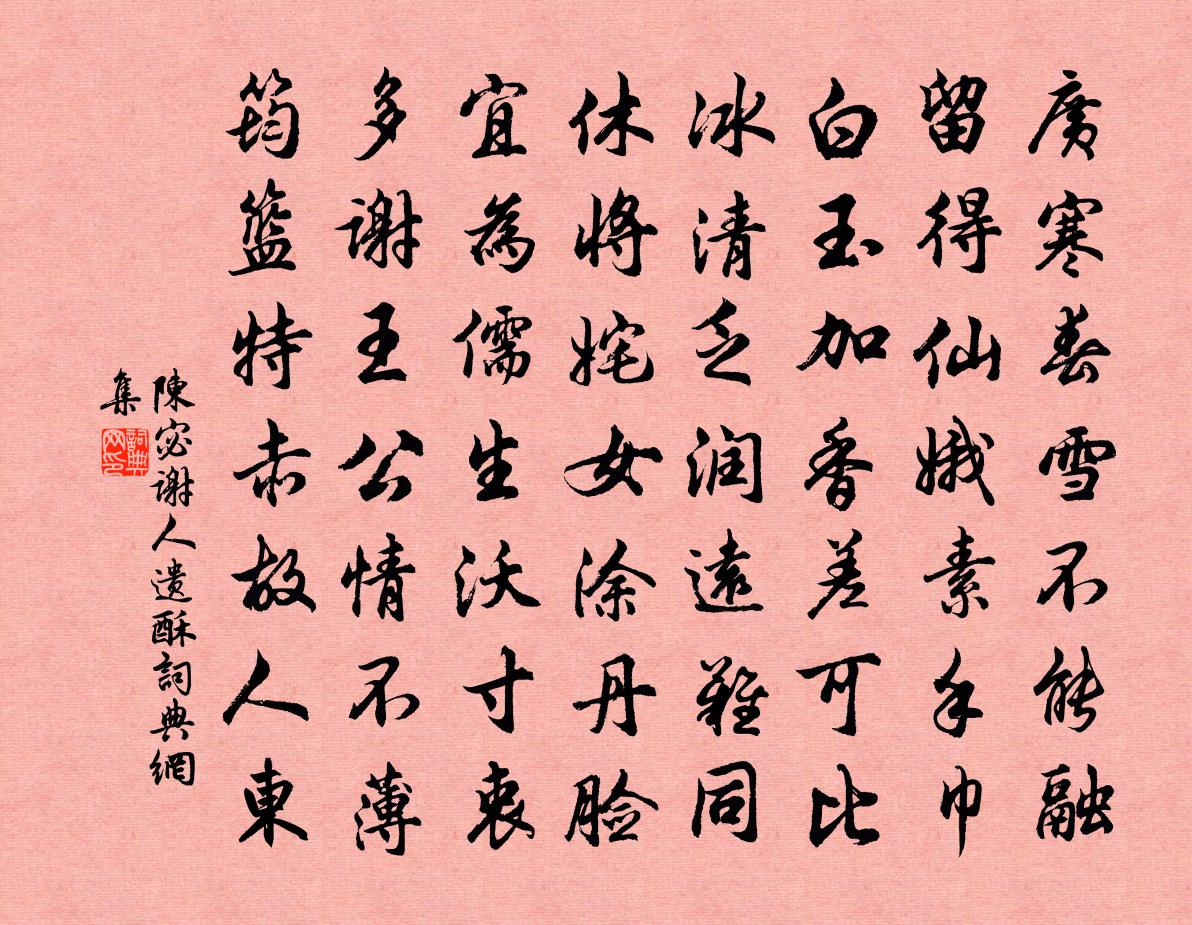 廣寒春雪不能融
留得仙娥素手中
白玉加香差可比
冰清乏润遠難同
休將姹女涂丹脸
宜為儒生沃寸衷
多謝王公情不薄
筠籃特赤故人東
陳宓謝人遺酥詞典網
集
詞典
网印